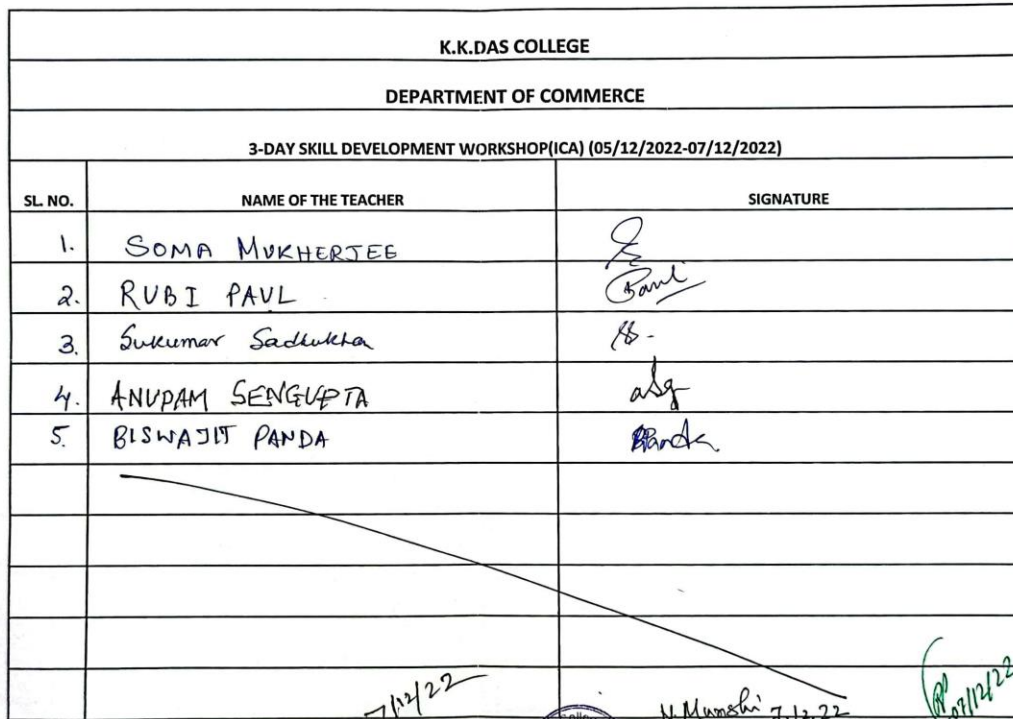 K.K.DAS COLLEGE
DEPARTMENT OF COMMERCE
3-DAY SKILL DEVELOPMENT WORKSHOP(ICA) (05/12/2022-07/12/2022)
SL. NO. NAME OF THE TEACHER SIGNATURE
1. SOMA MUKHERJEE
2. RUBI PAUL Paul
3. Sukumar Sadhukhan
4. ANUPAM SENGUPTA
5. BISWAJIT PANDA BPanda
7/12/22 N.Munshi 7.12.22 07/12/22